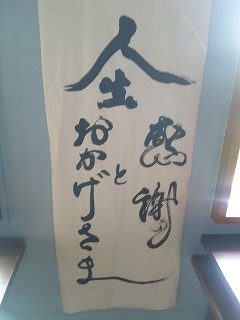 人生
感謝
と
おかげさま